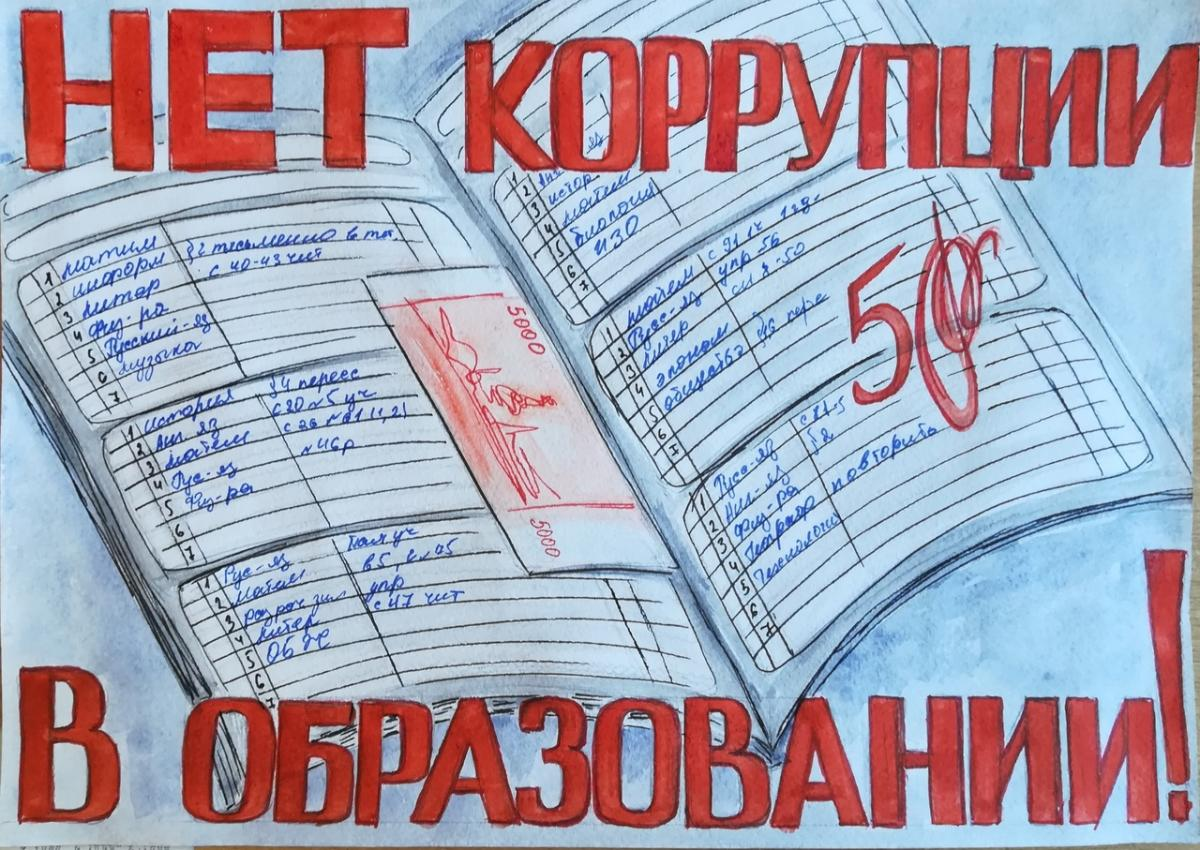 НЕТ КОРРУПЦИИ
1 матем §2 письменно в тет.
2 информ с 40-43 чит
3 литер
4 Физ-ра
5 Русский-яз
6 музыка
7
1 история §4 переес
2 Анг. яз с 20 №5 уч
3 матем
4 Рус-яз №46р
5 Физ-ра
6
7
1 Рус-яз
2 Матем
3 упр
4 литер с 47 чит
5 ОБЖ
6
7
5000
5000
1
2 истор
3 матем
4 биология
5 ИЗО
6
7
1 матем с 91 1ч
2 Русс-яз упр 56
3 литер
4 эконом
5 общество §46 пере
6
7
5
1 Русс-яз
2 Анг-яз §2
3 Физ-ра
4 повторить
5 Технология
6
7
В ОБРАЗОВАНИИ!